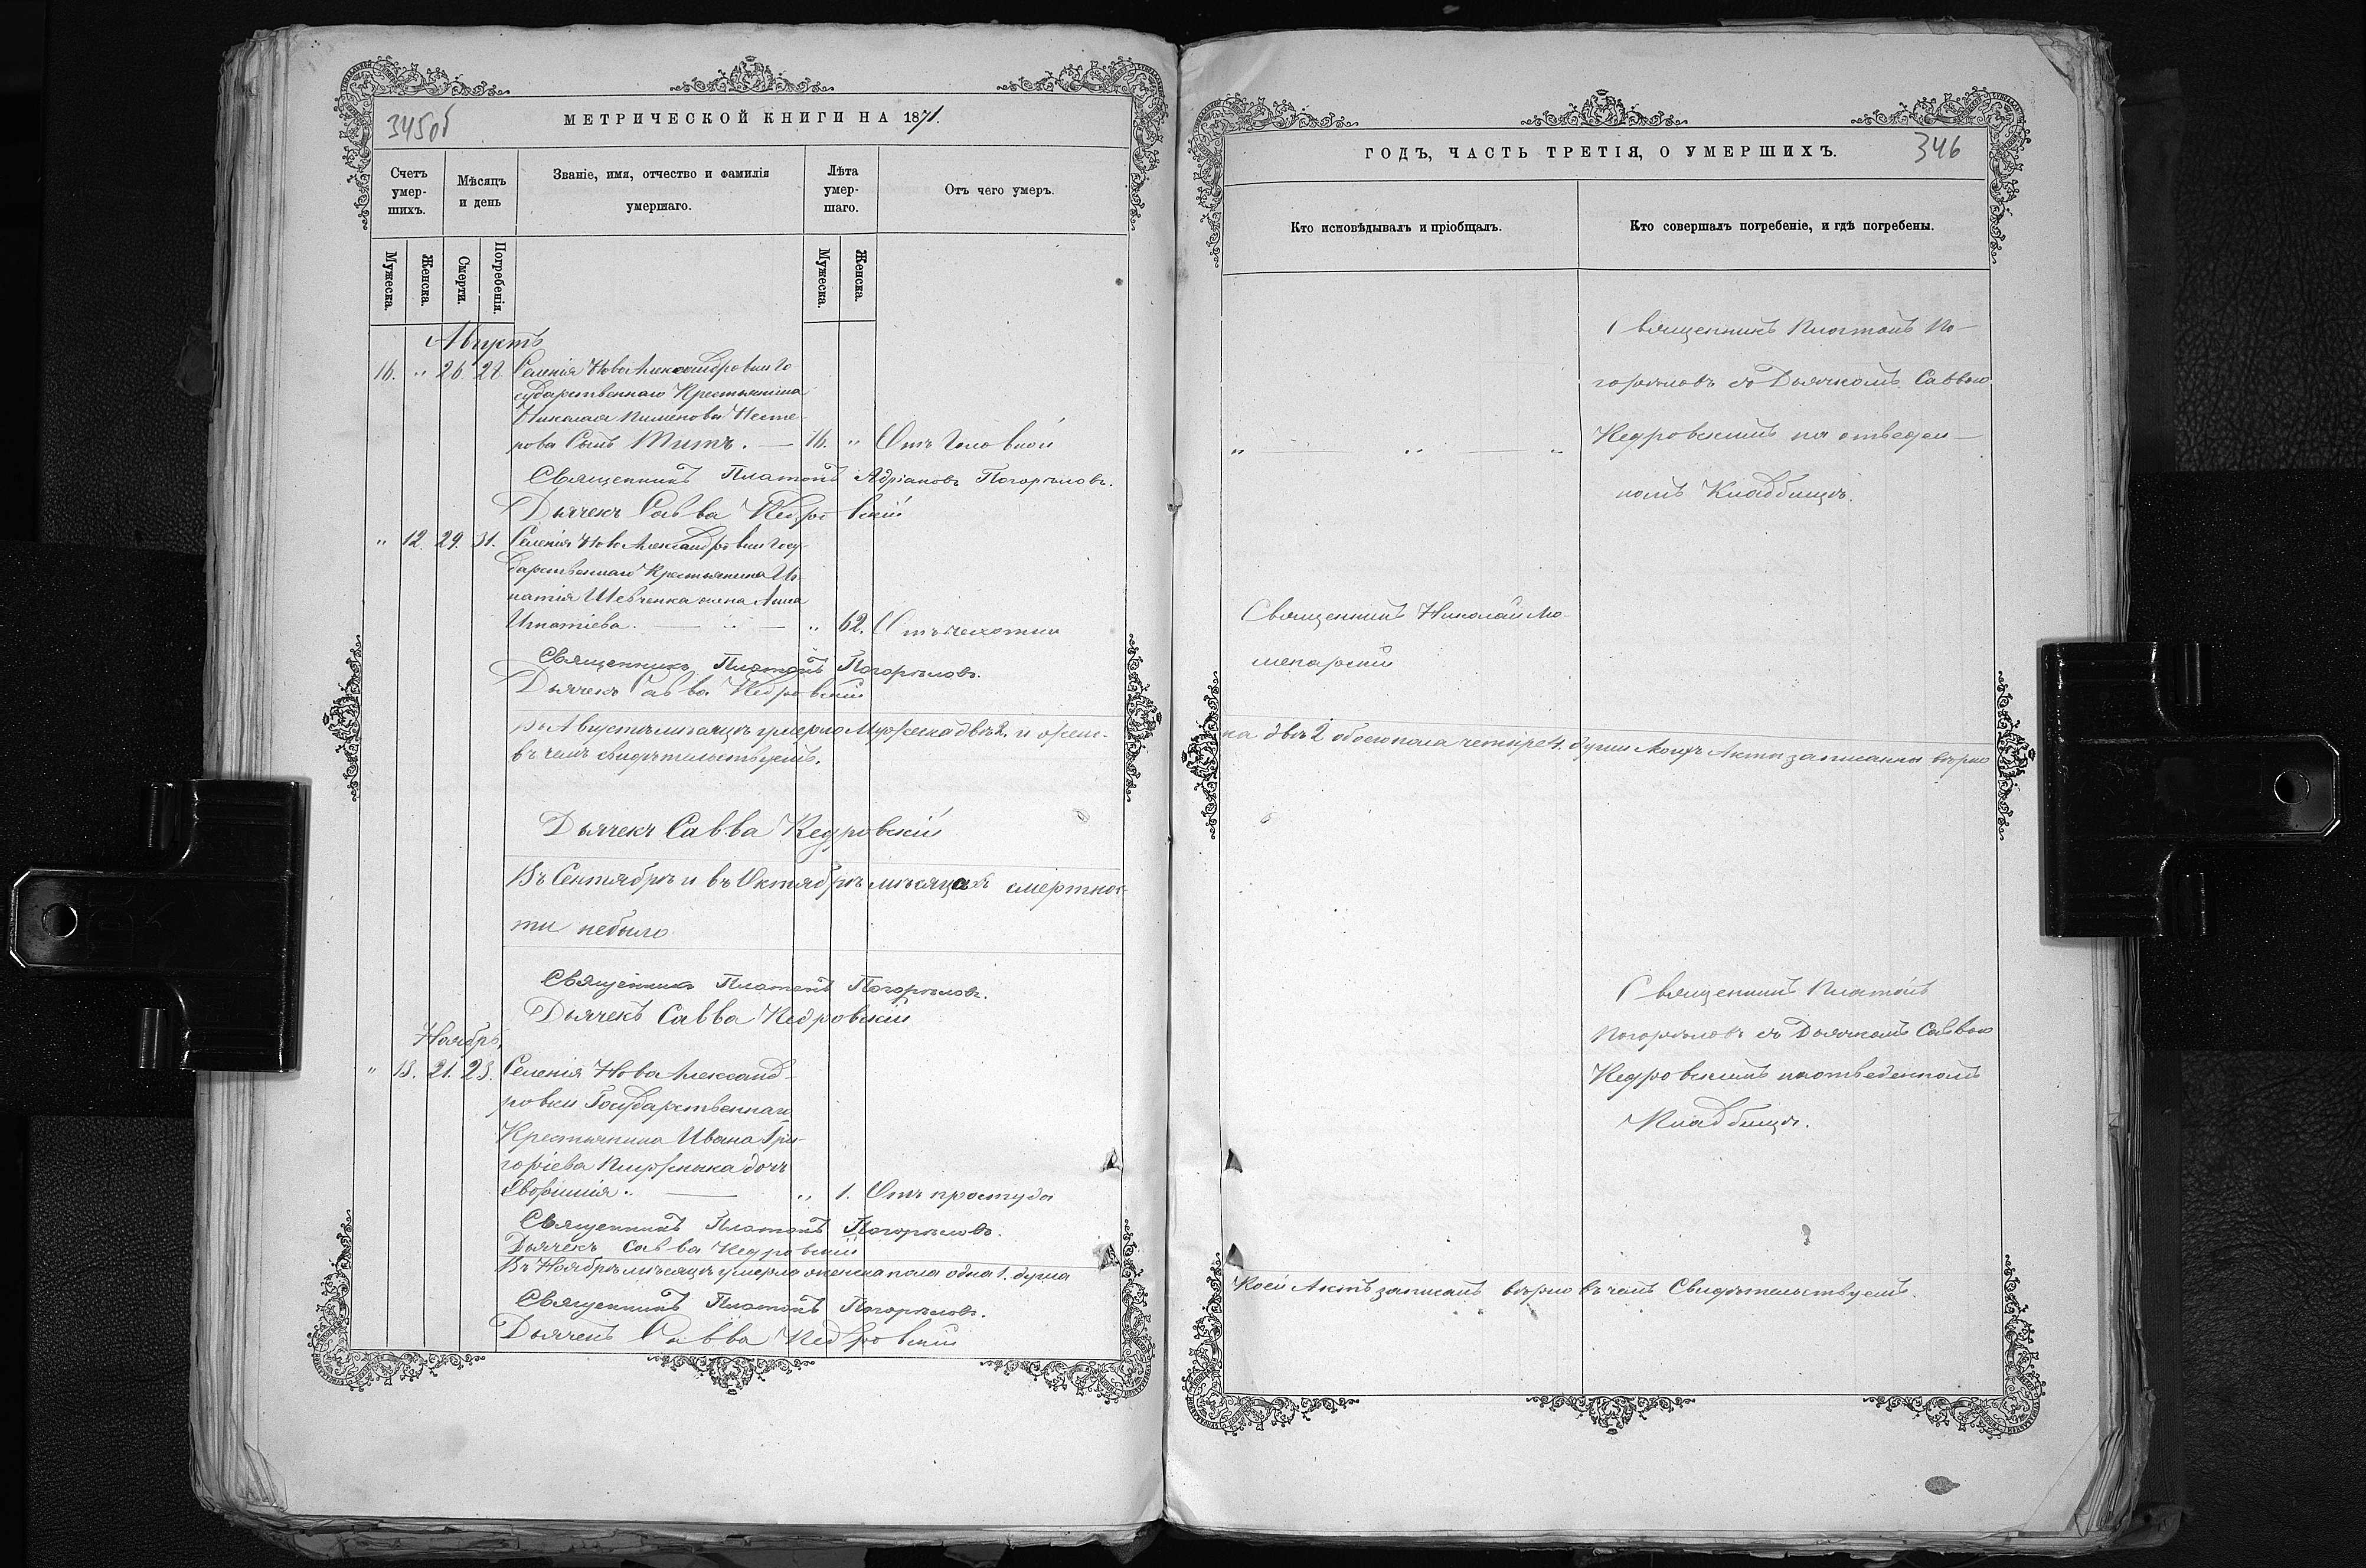 345об
МЕТРИЧЕСКОЙ КНИГИ НА 1871.
Счетъ умер-шихъ.
Мѣсяцъ и день
Званіе, имя, отчество и фамилія умершаго.
Лѣта умер-шаго.
Отъ чего умеръ.
Мужеска.
Женска.
Смерти.
Погребенія.
Мужеска.
Женска.
Августъ
16. " 26. 28. Селенія Ново Александровки Го
сударственнаго Крестьянина
Николая Пименова Несте-
рова Сынъ Титъ. — 16. " Отъ Головной
Священникъ Платонъ Адріановъ Погорѣловъ.
Дьячекъ Савва Кедровскій
" 12. 29. 31. Селенія Ново Александровки Госу-
дарственнаго Крестьянина Иг-
натія Шевченка жена Анна
Игнатіева. — " — " 62. Отъ чехотки
Священникъ Платонъ Погорѣловъ.
Дьячекъ Савва Кедровскій
въ Августѣ мѣсяцѣ умерло Мужеска двѣ 2, и женс-
въ чемъ свидѣтельствуемъ.
Дьячекъ Савва Кедровскій
Въ Сентябрѣ и въ Октябрѣ мѣсяцахъ смертнос-
ти небыло
Священникъ Платонъ Погорѣловъ.
Дьячекъ Савва Кедровскій
Ноябрь,
" 13. 21. 23. Селенія Ново Александ-
ровки Государственнаго
Крестьянина Ивана Гри-
горіева дочь
" 1. Отъ простуда
Священникъ Платонъ Погорѣловъ.
Дьячекъ Савва Кедровскій
Въ Ноябрѣ мѣсяцѣ умерло женска пола одна 1. душа
Священникъ Платонъ Погорѣловъ.
Дьячекъ Савва Кедровскій
ГОДЪ, ЧАСТЬ ТРЕТІЯ, О УМЕРШИХЪ.
346
Кто исповѣдывалъ и пріобщалъ.
Кто совершалъ погребеніе, и гдѣ погребены.
Священникъ Платонъ По-
горѣловъ съ Дьячкомъ Саввою
" — " — " Кедровскимъ на отведен-
номъ Кладбищѣ.
Священникъ Николай
ка двѣ 2 обоего пола четыре 4. души Акты записаны вѣрно
Священникъ Платонъ
Погорѣловъ съ Дьячкомъ Саввою
Кедровскимъ на отведенномъ
Кладбищѣ.
коей Актъ записанъ вѣрно въ чемъ Свидѣтельствуемъ.